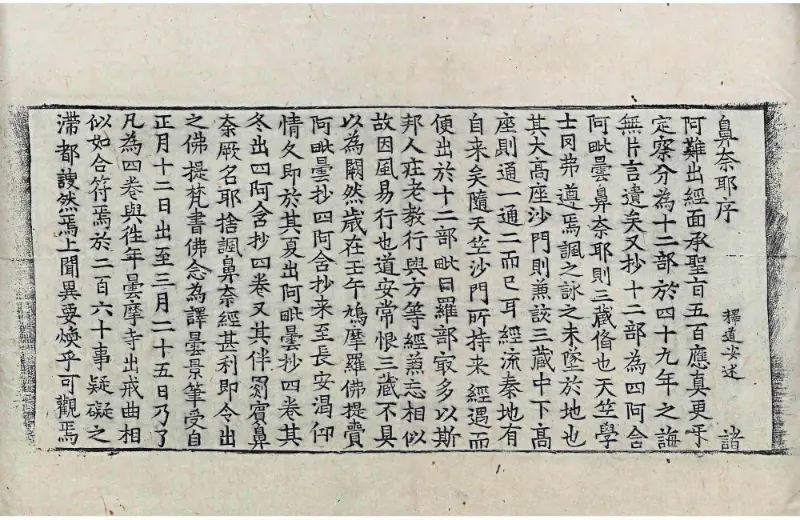 鼻奈耶序 釋道安述 諸
阿難出經面承聖旨五百應真更乎
定察分為十二部於四十九年之誨
無片言遺矣又抄十二部為四阿含
阿毗曇鼻奈耶則三藏俻也天竺學
士罔弗遵焉諷之詠之未墜於地也
其大高座沙門則兼該三藏中下高
座則通一通二而已耳經流秦地有
自来矣隨天竺沙門所持来經遇而
便出於十二部毗曰羅部㝡多以斯
邦人在老教行與方等經兼忘相似
故因風易行也道安常恨三藏不具
以為闕然歲在壬午鳩摩羅佛提賷
阿毗曇抄四阿含抄来至長安渴仰
情久即於其夏出阿毗曇抄四卷其
冬出四阿含抄四卷又其伴罽賓鼻
奈厥名耶捨諷鼻奈經甚利即令出
之佛提梵書佛念為譯曇景筆受自
正月十二日出至三月二十五日乃了
凡為四卷與徃年曇摩寺出戒曲相
似如合符焉於二百六十事疑礙之
滯都謏然焉上聞異要煥乎可觀焉